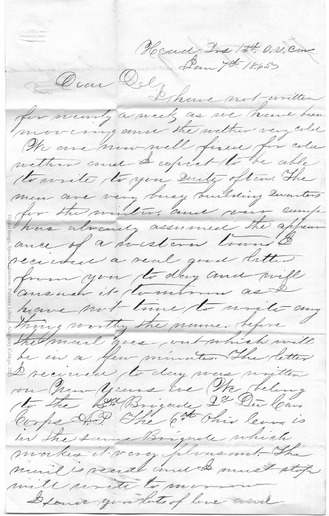 Head Qrs 13th O.V. Cav
Jan 7th 1865
Dear
I have not written
for nearly a week as we have been
moving and the wether very cold
We are now well fixed for cold
wether and I expect to be able
to write to you often. The
men are very busy building quarters
for the winter, and our camp
has already assumed the appear
ance of a western town I
received a real good letter
from you to day and will
answer it tomorrow as I
have not time to write any
thing worthy the name before
the mail goes out which will
be in a few minutes. The letter
I recieved to day was written
on New Years eve We belong
to the Brigade 2d Div Cav
Corps A.P. The 6th Ohio Cav is
in the same Brigade which
makes it very pleasant. The
mail is ready and I must stop
will write to morrow
I send you lots of love and